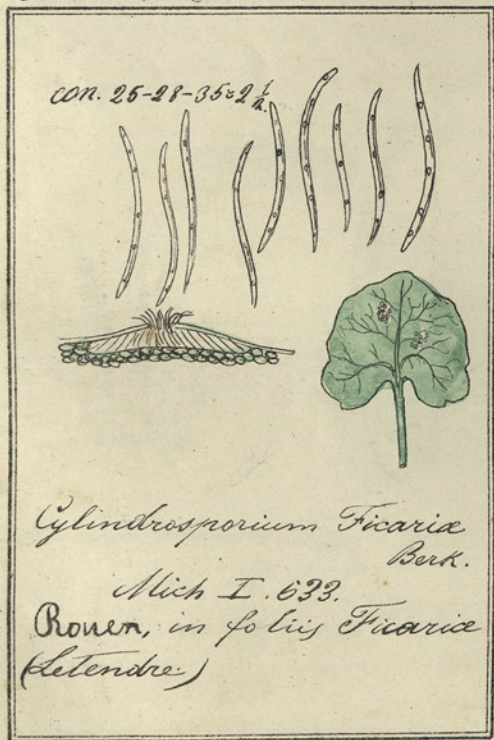 con. 25-28-35=2 1/2
Cylindrosporium Ficariæ
Berk.
Mich I. 633.
Rouen, in foliis Ficariæ
(Letendre.)